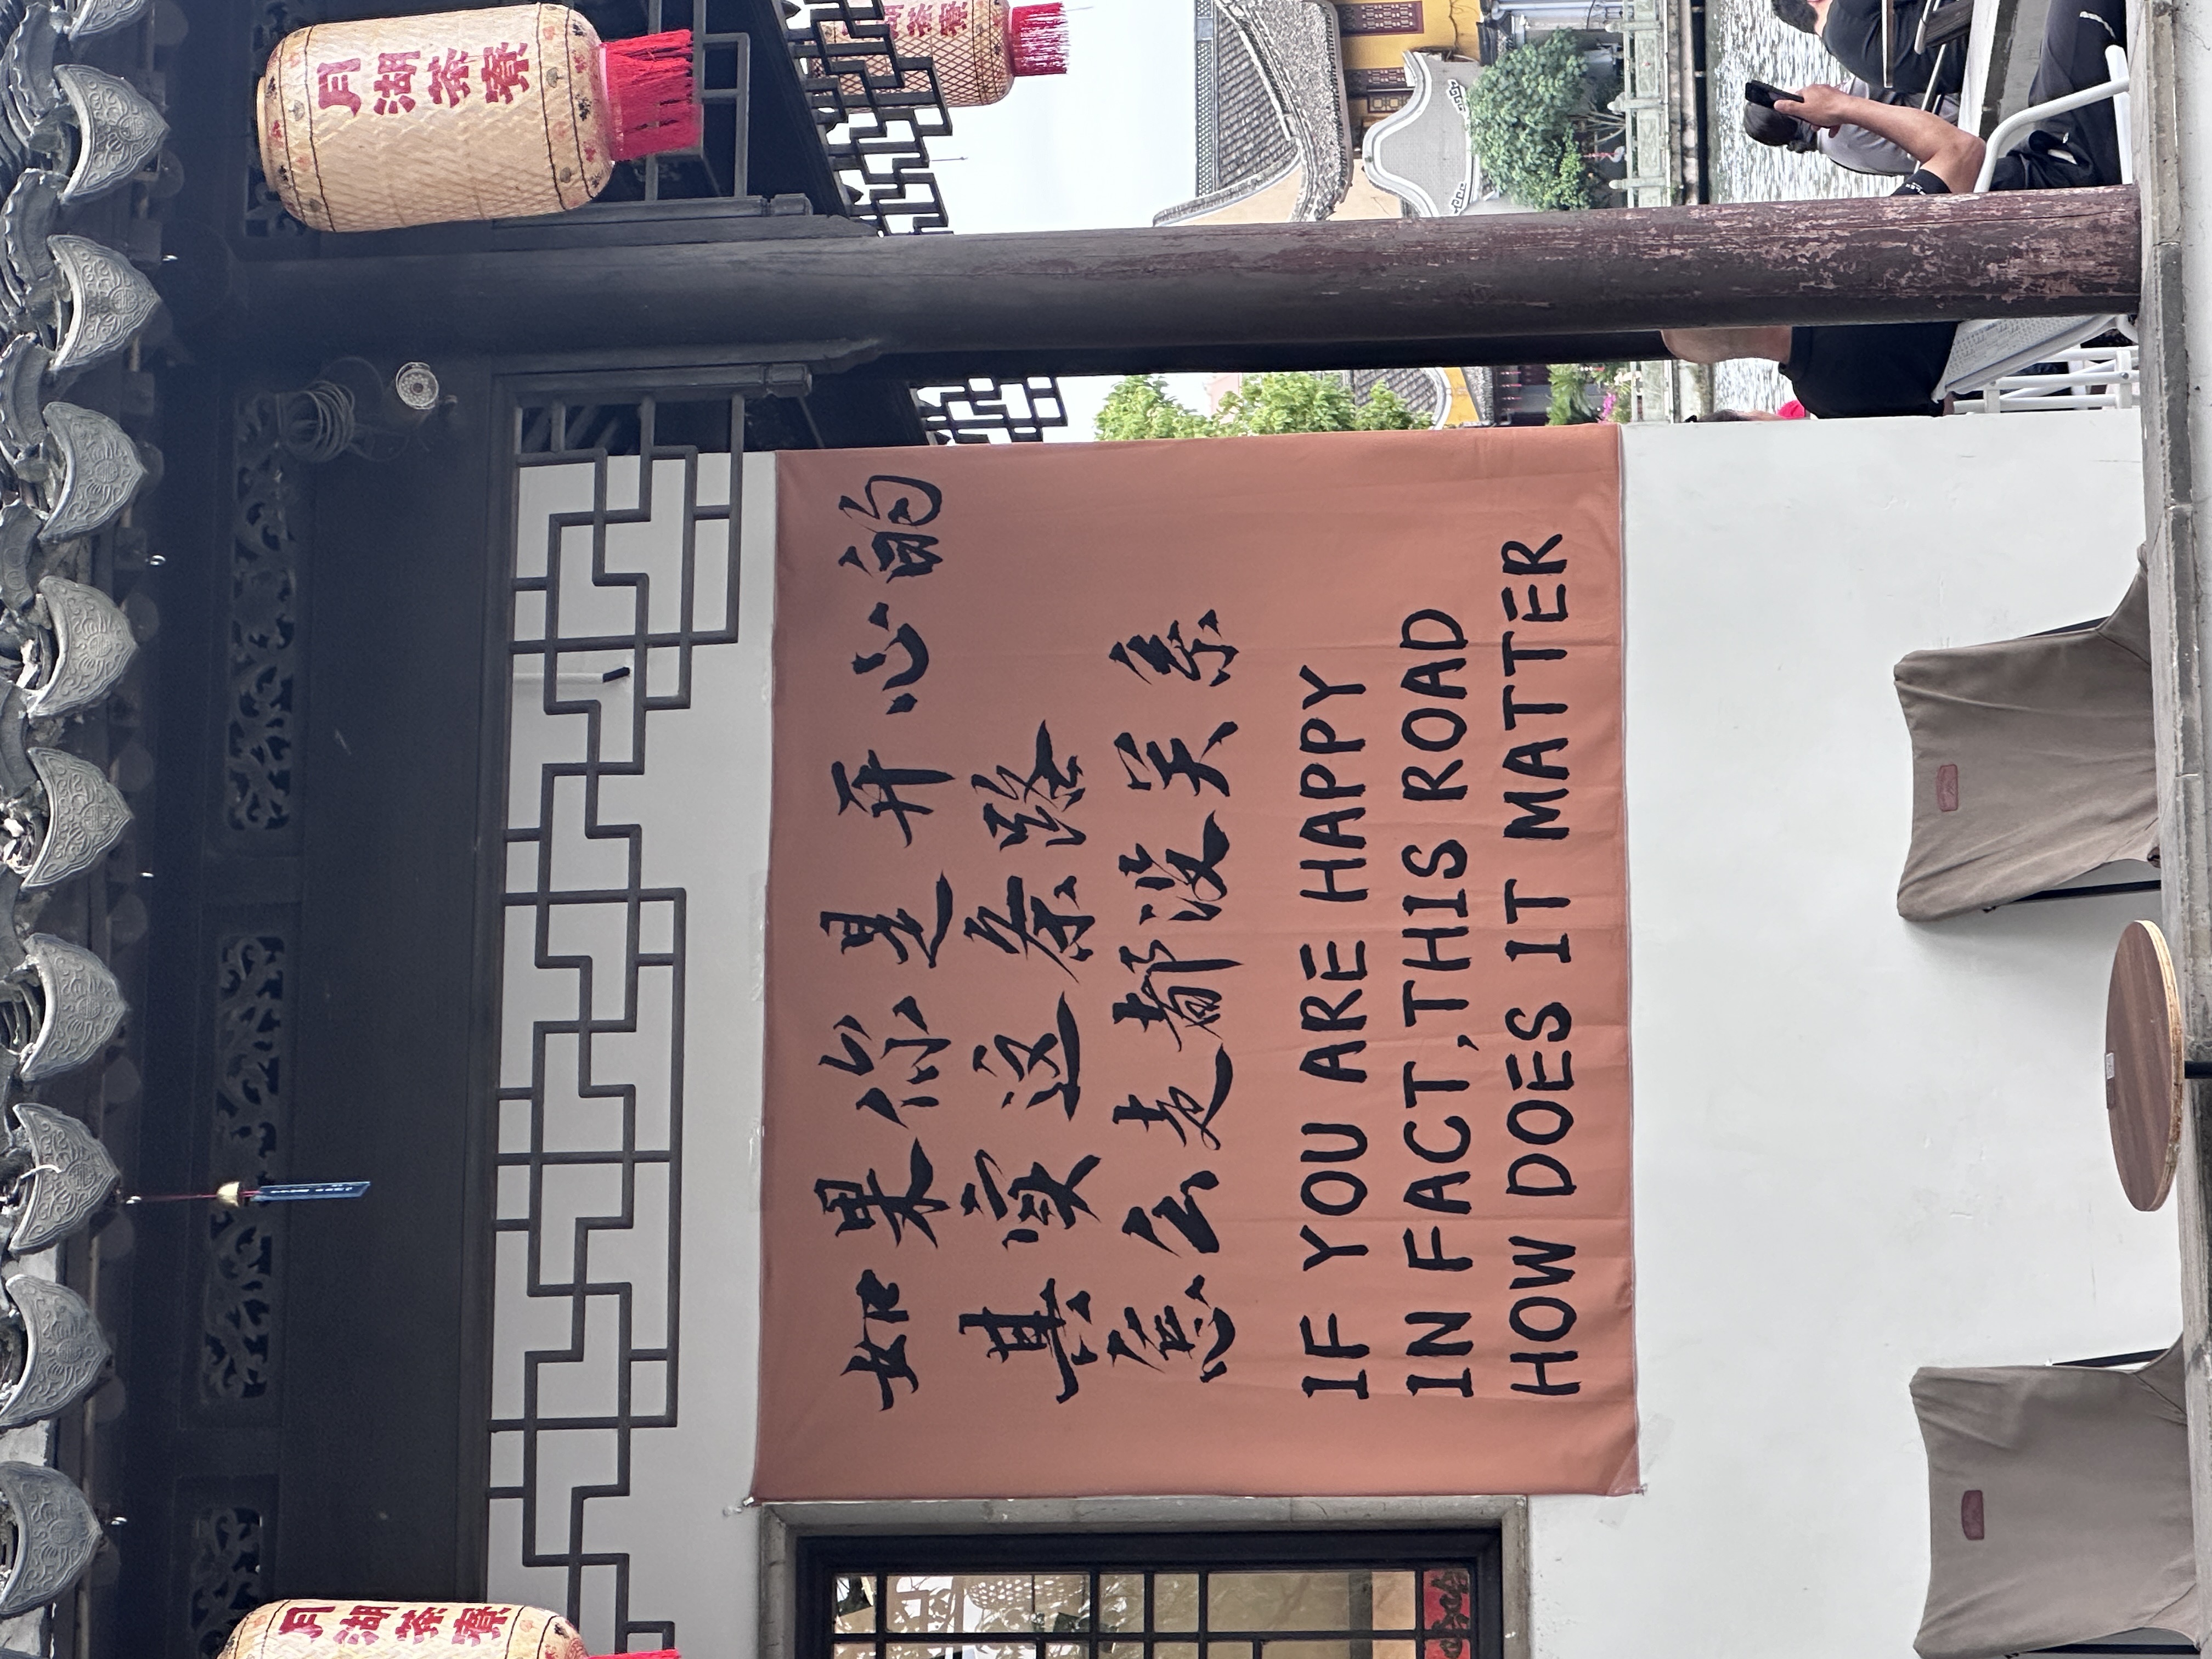 如果你是开心的
其实这条路
怎么走都没关系
IF YOU ARE HAPPY
IN FACT,THIS ROAD
HOW DOES IT MATTER
月湖茶寮
月湖茶寮
茶寮